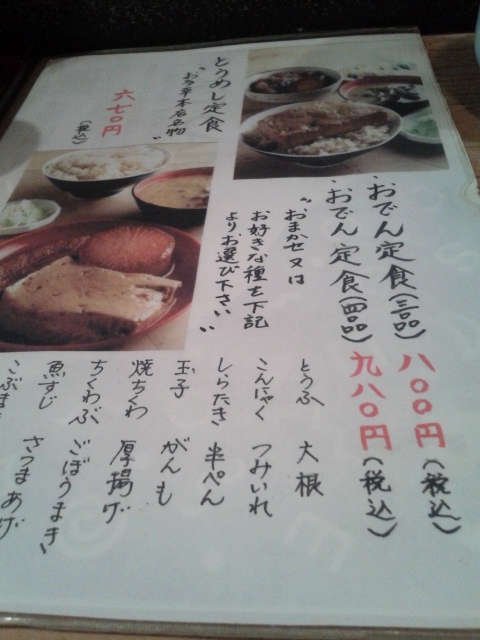 おでん定食(三品) 八〇〇円(税込)
おでん定食(四品) 九八〇円(税込)
"おまかせ又は
お好きな種を下記
よりお選び下さい"
とうふ 大根
こんにゃく つみいれ
しらたき 半ぺん
玉子 がんも
焼ちくわ 厚揚げ
ちくわぶ ごぼうまき
魚すじ さつまあげ
こぶま
とうめし定食
"お多幸本店名物"
六七〇円
(税込)